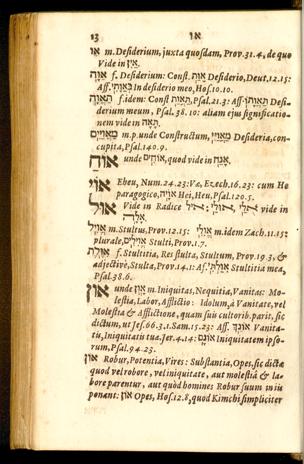 13 או
אַו m. Desiderium, juxta quosdam, Prov. 31. 4, de quo
Vide in אַיִן.
אַוָּה f. Desiderium: Const. אַוַּת Desiderio, Deut. 12. 15:
Aff. בְּאַוָּתִי In desiderio meo, Hos. 10. 10.
תַּאֲוָה f. idem: Const. תַּאֲוַת, Psal. 21. 3: Aff. תַּאֲוָתִי Desi-
derium meum, Psal. 38. 10: aliam ejus significatio-
nem vide in תָּאָה.
מַאֲוַיִּים m. p. unde Constructum, מַאֲוַיֵּי Desideria, con-
cupita, Psal. 140. 9.
אוֹחַ unde אוֹחִים, quod vide in אָנַח.
אוֹי Eheu, Num. 24. 23: Væ, Ezech. 16. 23: cum He
paragogico, אוֹיָה Hei, Heu, Psal. 120. 5.
אוּל Vide in Radice vide in
אָלָה.
אֱוִיל m. Stultus, Prov. 12. 15: אֱוִלִי m. idem Zach. 11. 15:
plurale, אֱוִילִים Stulti, Prov. 1. 7.
אִוֶּלֶת f. Stultitia, Res stulta, Stultum, Prov. 19. 3, &
adjectivè, Stulta, Prov. 14. 1: Aff. אִוַּלְתִּי Stultitia mea,
Psal. 38. 6.
אוּן unde אָוֶן m. Iniquitas, Nequitia, Vanitas: Mo-
lestia, Labor, Afflictio: Idolum, à Vanitate, vel
Molestia & Afflictione, quam suis cultorib. parit, sic
dictum, ut Jes. 66. 3. 1. Sam. 15. 23: Aff. אוֹנֵךְ Vanita-
tis, Iniquitatis tuæ, Jer. 4. 14: אוֹנָם Iniquitatem ipso-
rum, Psal. 94. 23.
אוֹן Robur, Potentia, Vires: Substantia, Opes, sic dictæ
quod vel robore, vel iniquitate, aut molestiâ & la-
bore parentur, aut quòd homines Robur suum in iis
ponant: אוֹן Opes, Hos. 12. 8, quod Kimchi simpliciter